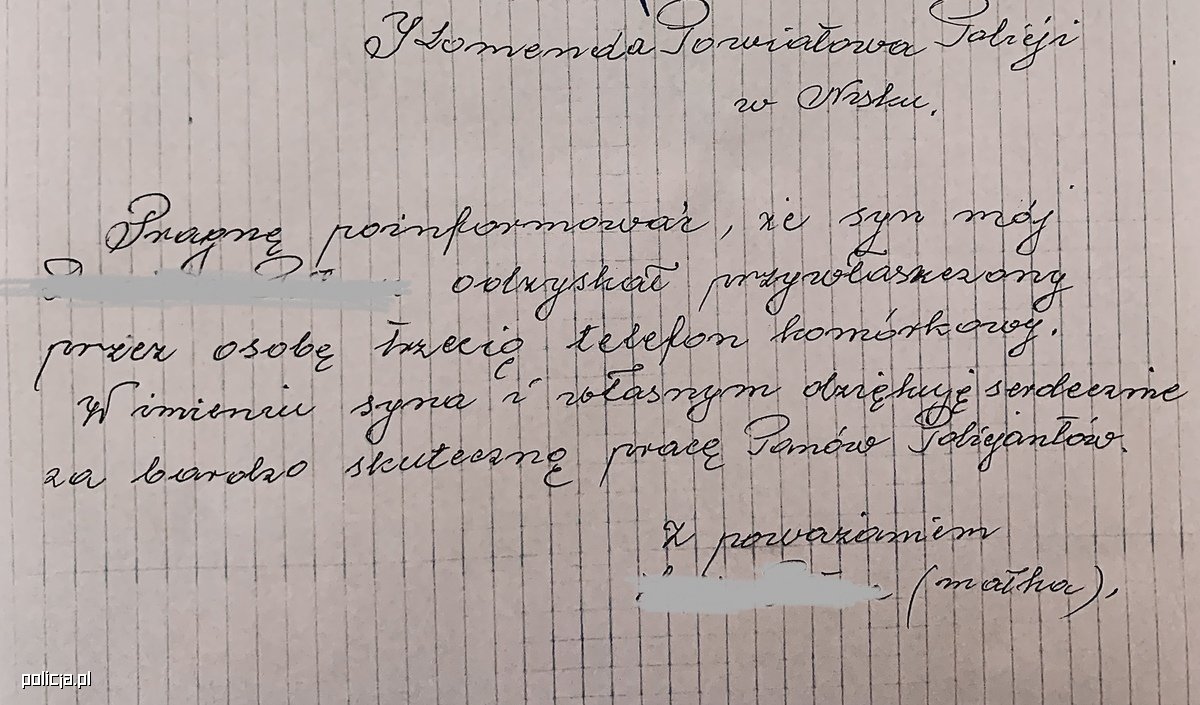 Komenda Powiatowa Policji
w Nisku.
Pragnę poinformować, że syn mój
odzyskał przywłaszczony
przez osobę trzecią telefon komórkowy.
W imieniu syna i własnym dziękuję serdecznie
za bardzo skuteczną pracę Panów Policjantów.
Z poważaniem
(matka).
policja.pl